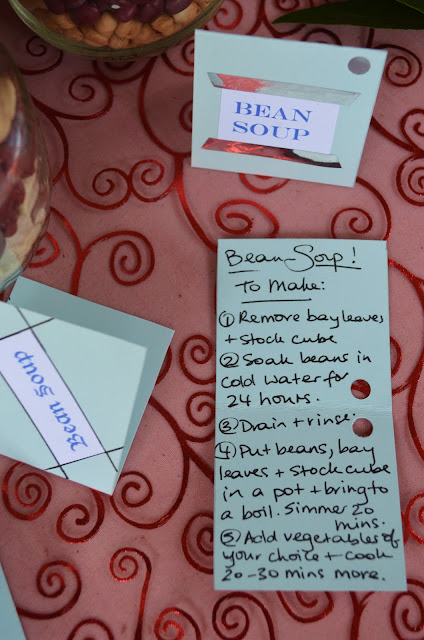 BEAN
SOUP
Bean Soup!
To Make:
① Remove bay leaves
+ stock cube
② Soak beans in
cold water for
24 hours.
③ Drain + rinse.
④ Put beans, bay
leaves + stock cube
in a pot + bring to
a boil. Simmer 20
mins.
⑤ Add vegetables of
your choice + cook
20-30 mins more.
Bean Soup